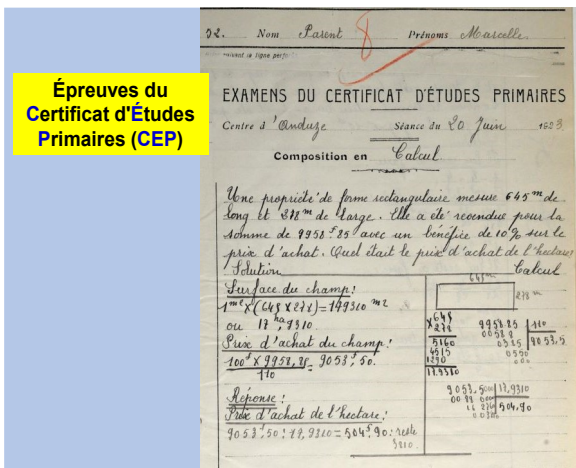 Épreuves du
Certificat d'Études
Primaires (CEP)
Nom Parent 8 Prénoms Marcelle
suivant la ligne perfo
EXAMENS DU CERTIFICAT D'ÉTUDES PRIMAIRES
Centre d'Anduze Séance du 20 Juin
Composition en Calcul
Une propriété de forme rectangulaire mesure 645m de
long et 278m de large. Elle a été revendue pour la
somme de 9958f85 avec un bénéfice de 10% sur le
prix d'achat. Quel était le prix d'achat de l'hectare?
Solution Calcul
Surface du champ:
1m2 X (645 X 278) = 179310 m2
ou 17ha,9310.
Prix d'achat du champ:
100f X 9958,85 = 9053f,50.
110
Réponse:
Prix d'achat de l'hectare:
9053f,50 : 17,9310 = 504f,90 : reste
645m
278m
X 645
278
5160
4515
1290
17,9310
9958.85 110
0058 8
0385 9053,5
0550
000
9053,5000 17,9310
504,90